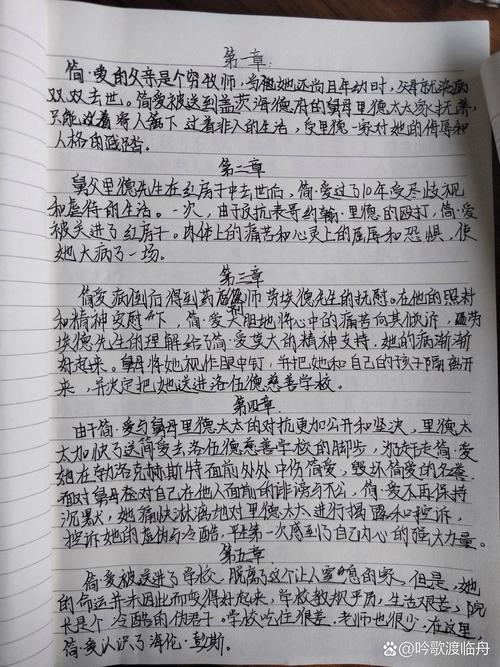 第一章:
简·爱的父亲是个穷牧师,当她还尚且年幼时,父母就染病
双双去世。简爱被送到盖茨海德府的舅母里德太太家抚养,
只能过着寄人篱下过着非人的生活,受里德一家对她的侮辱和
人格的践踏。
第二章
舅父里德先生在红房子中去世后,简·爱过了10年受尽歧视
和虐待的生活。一次,由于反抗表哥约翰·里德的殴打,简·爱
被关进了红房子。肉体上的痛苦和心灵上的屈辱和恐惧,使
她大病了一场。
第三章
简爱病倒后得到药剂师劳埃德先生的抚慰。在他的照料
和精神安慰下,简·爱大胆地将心中的痛苦向其倾诉,因为
埃德先生的理解给了简·爱莫大的精神支持,她的病渐渐
好起来。舅母将她视作眼中钉,并把她和自己的孩子隔离开
来,并决定把她送进洛伍德慈善学校。
第四章
由于简·爱与舅母里德太太的对抗更加公开和坚决,里德太
太加快了送简爱去洛伍德慈善学校的脚步,为赶走简·爱
她在勃洛克赫斯特面前处处中伤简爱,毁坏简爱的名誉。
面对舅母在对自己在他人面前的诽谤与不公,简·爱不再保持
沉默,她痛快淋漓地对里德太太进行揭露和控诉,
控诉她的虚伪与冷酷,平生第一次感到了自己内心的强大力量。
第五章
简·爱被送进了学校,脱离了这个让人窒息的家。但是,她
的命运并未因此而变得好起来,学校教规严厉,生活艰苦,院
长是个冷酷的伪君子。学校吃住很差,老师也很少。在这里,
简·爱认识了海伦·彭斯。
@吟歌渡临舟